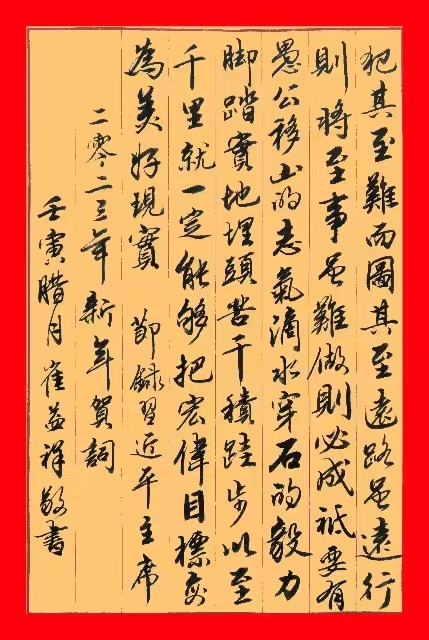 犯其至難而圖其至遠路虽遠行
則將至事虽難做則必成祗要有
愚公移山的志氣滴水穿石的毅力
脚踏實地埋頭苦干積跬步以至
千里就一定能够把宏偉目標变
為美好現實 節録習近平主席
二零二三年新年賀詞
壬寅腊月崔益祥敬書